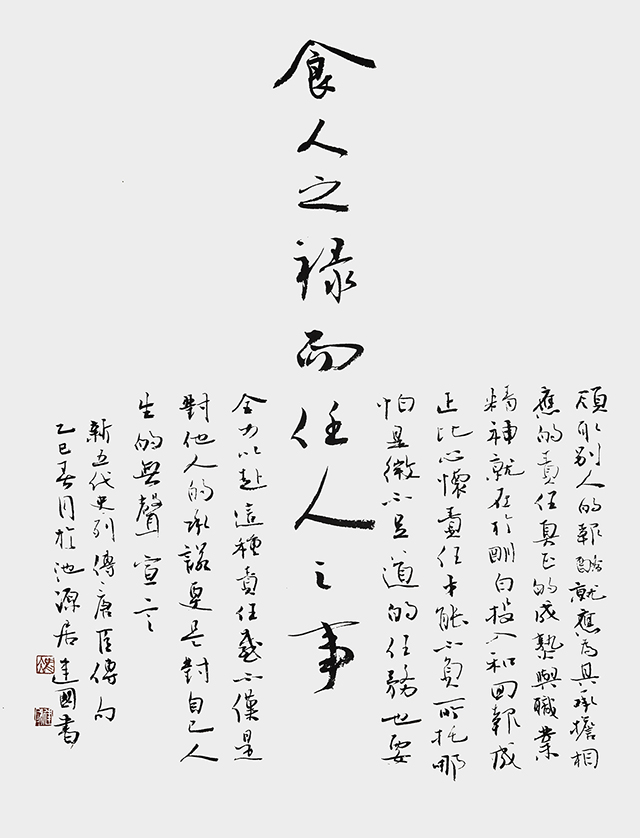 食人之禄而任人之事
領取別人的報酬就應為其承擔相
應的責任真正的成熟與職業
精神就在於明白投入和回報成
正比心懷責任才能不負所托哪
怕是微不足道的任務也要
全力以赴這種責任感不僅是
對他人的承諾更是對自己人
生的無聲宣言
新五代史列傳唐臣傳句
乙巳春月於池源居建國書